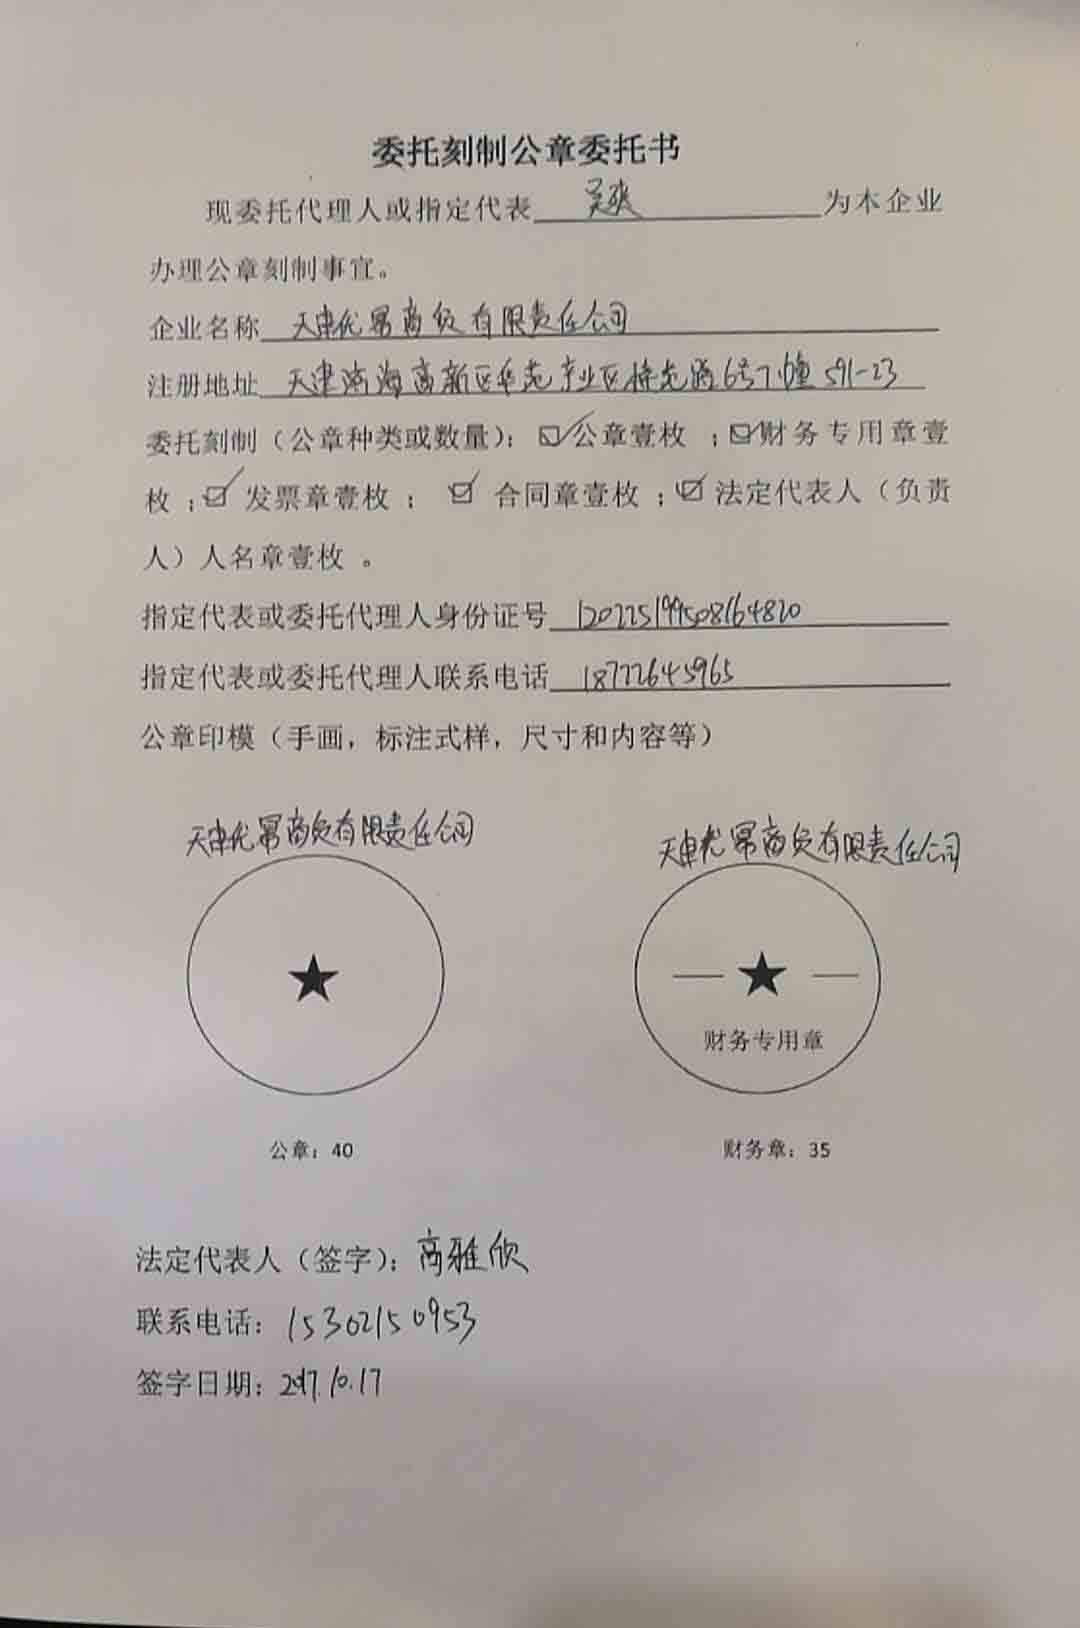 委托刻制公章委托书
现委托代理人或指定代表 吴爽 为本企业
办理公章刻制事宜。
企业名称 天津优幂商贸有限责任公司
注册地址 天津滨海高新区华苑产业区榕苑路6号7幢591-23
委托刻制（公章种类或数量）：☑公章壹枚 ；☑财务专用章壹
枚 ；☑ 发票章壹枚 ； ☑ 合同章壹枚 ；☑ 法定代表人（负责
人）人名章壹枚 。
指定代表或委托代理人身份证号 120225199508164820
指定代表或委托代理人联系电话 18722645965
公章印模（手画，标注式样，尺寸和内容等）
天津优幂商贸有限责任公司
天津优幂商贸有限责任公司
财务专用章
公章：40
财务章：35
法定代表人（签字）：高雅欣
联系电话：15302150953
签字日期：2017.10.17